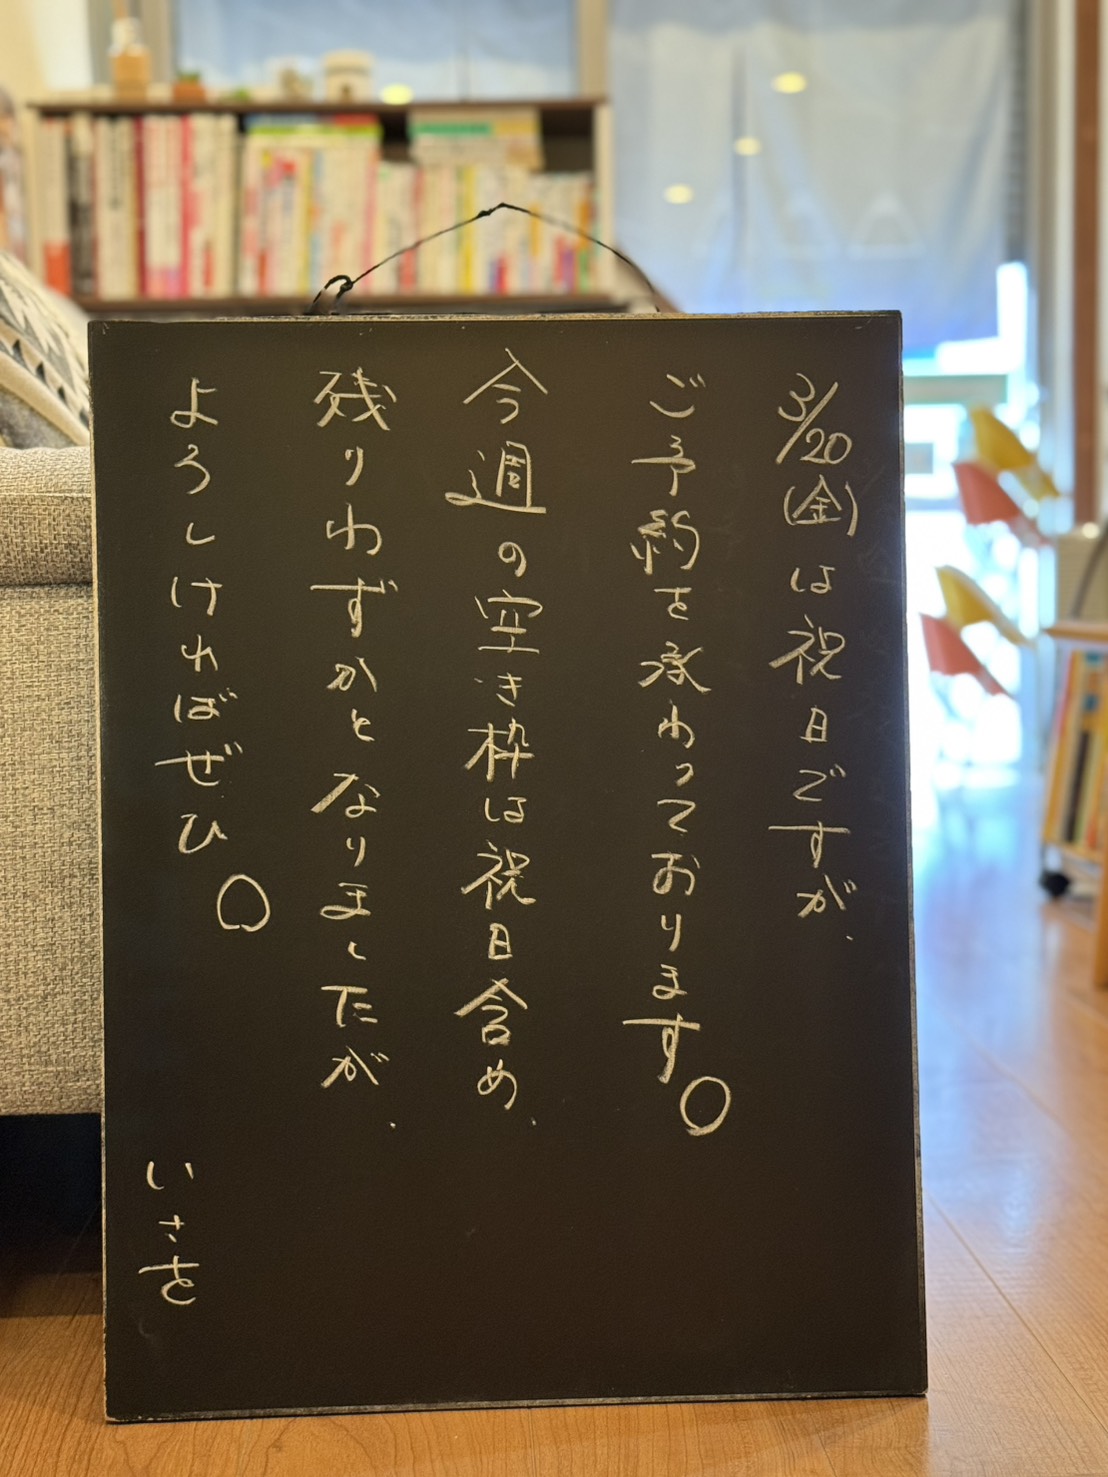 3/20(金)は祝日ですが、
ご予約を承わっております。
今週の空き枠は祝日含め、
残りわずかとなりましたが、
よろしければぜひ。
いさを